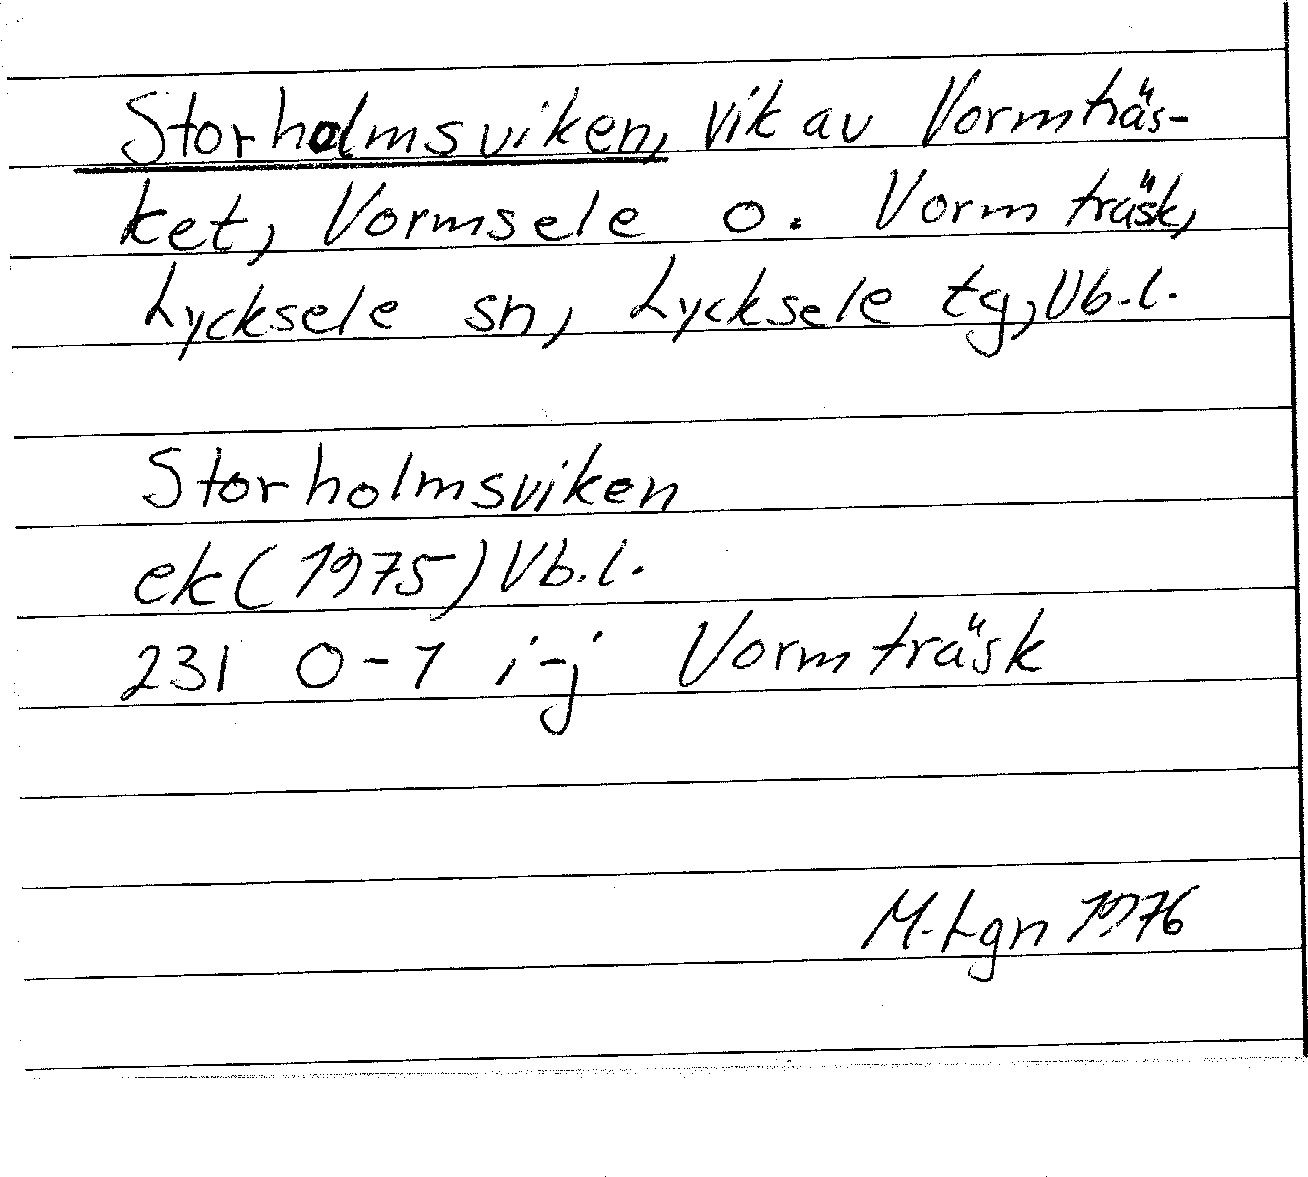 Storholmsviken, vik av Vormträs-
ket, Vormsele o. Vormträsk,
Lycksele sn, Lycksele tg, Vb.l.
Storholmsviken
ek (1975) Vb.l.
231 0-1 i-j Vormträsk
M. Lgn 1976